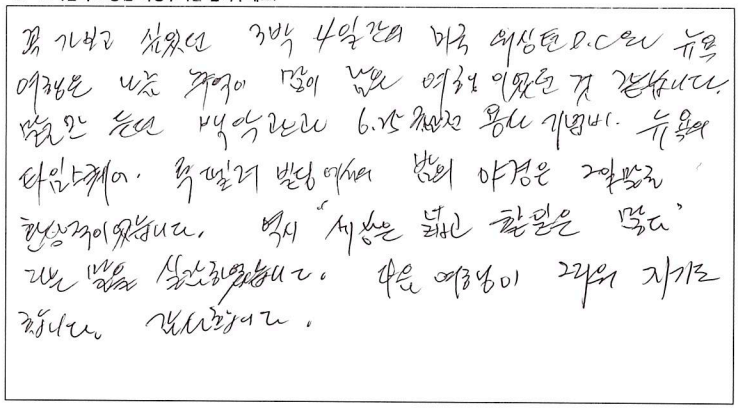 꼭 가보고 싶었던 3박 4일간의 미국 워싱턴 D.C와 뉴욕
여행은 나름 추억이 많이 남는 여행이었던 것 같습니다.
말로만 듣던 백악관과 6.25 참전 용사 기념비. 뉴욕의
타임스퀘어. 록펠러 빌딩에서의 밤의 야경은 그야말로
환상적이었습니다. 역시 "세상은 넓고 할일은 많다"
라는 말을 실감하였습니다. 다음 여행이 그리워 지기도
합니다. 감사합니다.